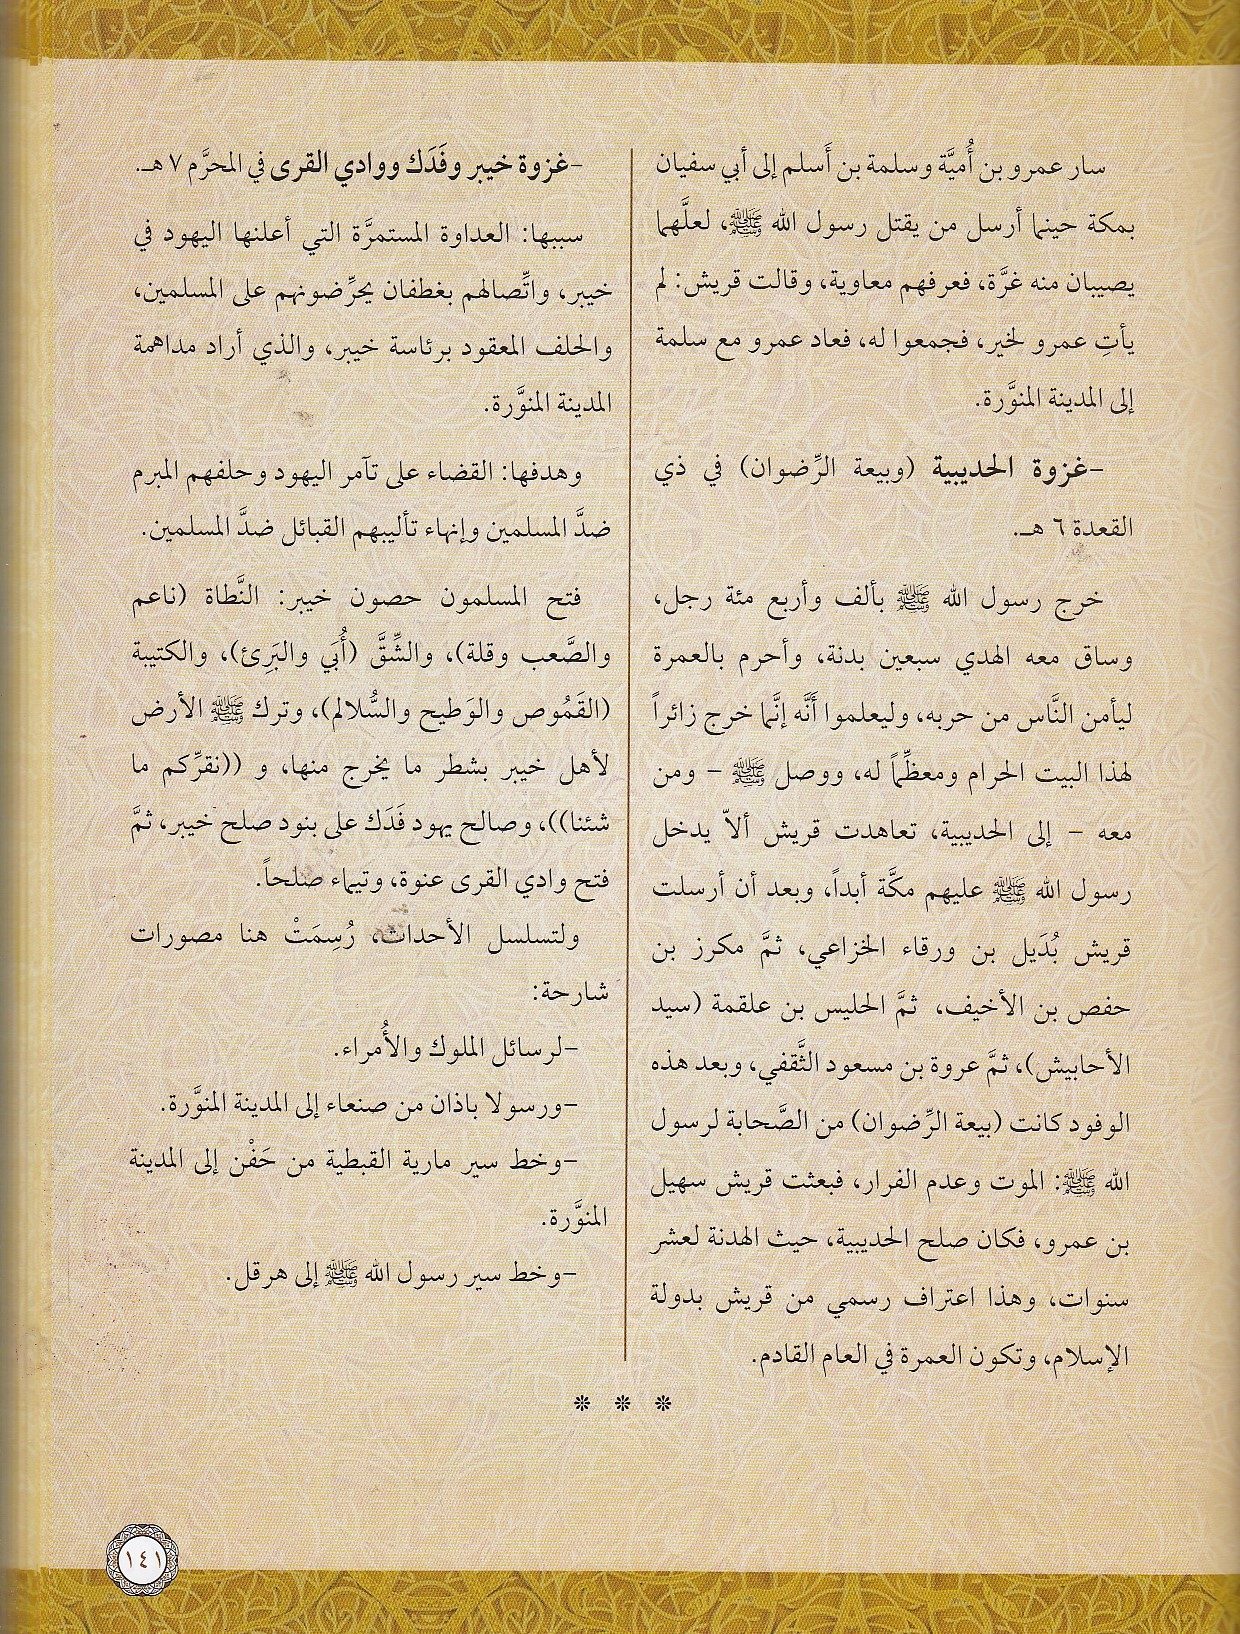 سار عمرو بن أُميَّة وسلمة بن أَسلم إلى أبي سفيان
بمكة حينما أرسل من يقتل رسول الله ﷺ، لعلَّهما
يصيبان منه غرَّة، فعرفهم معاوية، وقالت قريش: لم
يأتِ عمرو لخير، فجمعوا له، فعاد عمرو مع سلمة
إلى المدينة المنوَّرة.
-غزوة الحديبية (وبيعة الرِّضوان) في ذي
القعدة ٦ هـ.
خرج رسول الله ﷺ بألف وأربع مئة رجل،
وساق معه الهدي سبعين بدنة، وأحرم بالعمرة
ليأمن النَّاس من حربه، وليعلموا أَنَّه إنَّما خرج زائراً
لهذا البيت الحرام ومعظِّماً له، ووصل ﷺ - ومن
معه - إلى الحديبية، تعاهدت قريش ألاّ يدخل
رسول الله ﷺ عليهم مكَّة أبداً، وبعد أن أرسلت
قريش بُدَيل بن ورقاء الخزاعي، ثمَّ مكرز بن
حفص بن الأخيف، ثمَّ الحليس بن علقمة (سيد
الأحابيش)، ثمَّ عروة بن مسعود الثَّقفي، وبعد هذه
الوفود كانت (بيعة الرِّضوان) من الصَّحابة لرسول
الله ﷺ: الموت وعدم الفرار، فبعثت قريش سهيل
بن عمرو، فكان صلح الحديبية، حيث الهدنة لعشر
سنوات، وهذا اعتراف رسمي من قريش بدولة
الإسلام، وتكون العمرة في العام القادم.
-غزوة خيبر وفَدَك ووادي القرى في المحرَّم ٧ هـ.
سببها: العداوة المستمرَّة التي أعلنها اليهود في
خيبر، واتِّصالهم بغطفان يحرِّضونهم على المسلمين،
والحلف المعقود برئاسة خيبر، والذي أراد مداهمة
المدينة المنوَّرة.
وهدفها: القضاء على تآمر اليهود وحلفهم المبرم
ضدَّ المسلمين وإنهاء تأليبهم القبائل ضدَّ المسلمين.
فتح المسلمون حصون خيبر: النَّطاة (ناعم
والصَّعب وقلة)، والشِّقَّ (أُبَي والبَرِئ)، والكتيبة
(القَمُوص والوَطيح والسُّلالم)، وترك ﷺ الأرض
لأهل خيبر بشطر ما يخرج منها، و ((نقرِّكم ما
شئنا))، وصالح يهود فَدَك على بنود صلح خيبر، ثمَّ
فتح وادي القرى عنوة، وتيماء صلحاً.
ولتسلسل الأحداث، رُسِمَتْ هنا مصورات
شارحة:
-لرسائل الملوك والأُمراء.
-ورسولا باذان من صنعاء إلى المدينة المنوَّرة.
-وخط سير مارية القبطية من حَفْن إلى المدينة
المنوَّرة.
-وخط سير رسول الله ﷺ إلى هرقل.
* * *
١٤١